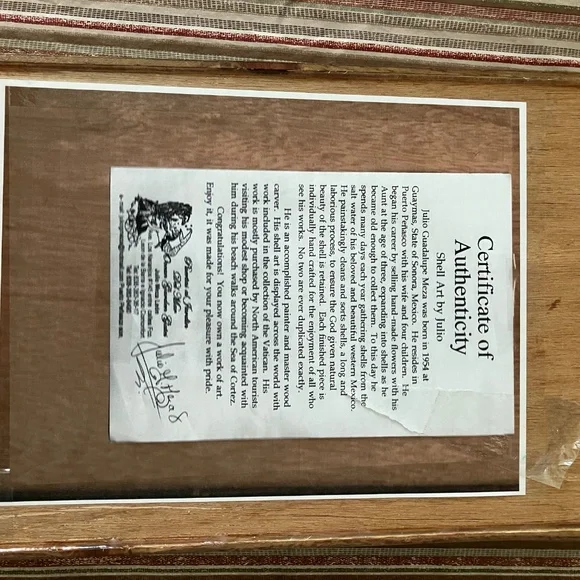 Certificate of
Authenticity
Shell Art by Julio
Julio Guadalupe Meza was born in 1954 at
Guaymas, State of Sonora, Mexico. He resides in
Puerto Peñasco with his wife and four children. He
began his career by selling hand-made flowers with his
Aunt at the age of three, expanding into shells as he
became old enough to collect them. To this day he
spends many days each year gathering shells from the
salt water of his beloved and beautiful western Mexico.
He painstakingly cleans and sorts shells, a long and
laborious process, to ensure the God given natural
beauty of the shell is retained. Each finished piece is
individually hand crafted for the enjoyment of all who
see his works. No two are ever duplicated exactly.
He is an accomplished painter and master wood
carver. His shell art is displayed across the world with
work included in the collection of the Vatican. His
work is mostly purchased by North American tourists
visiting his modest shop or becoming acquainted with
him during his beach walks around the Sea of Cortez.
Congratulations! You now own a work of art.
Enjoy it, it was made for your pleasure with pride.